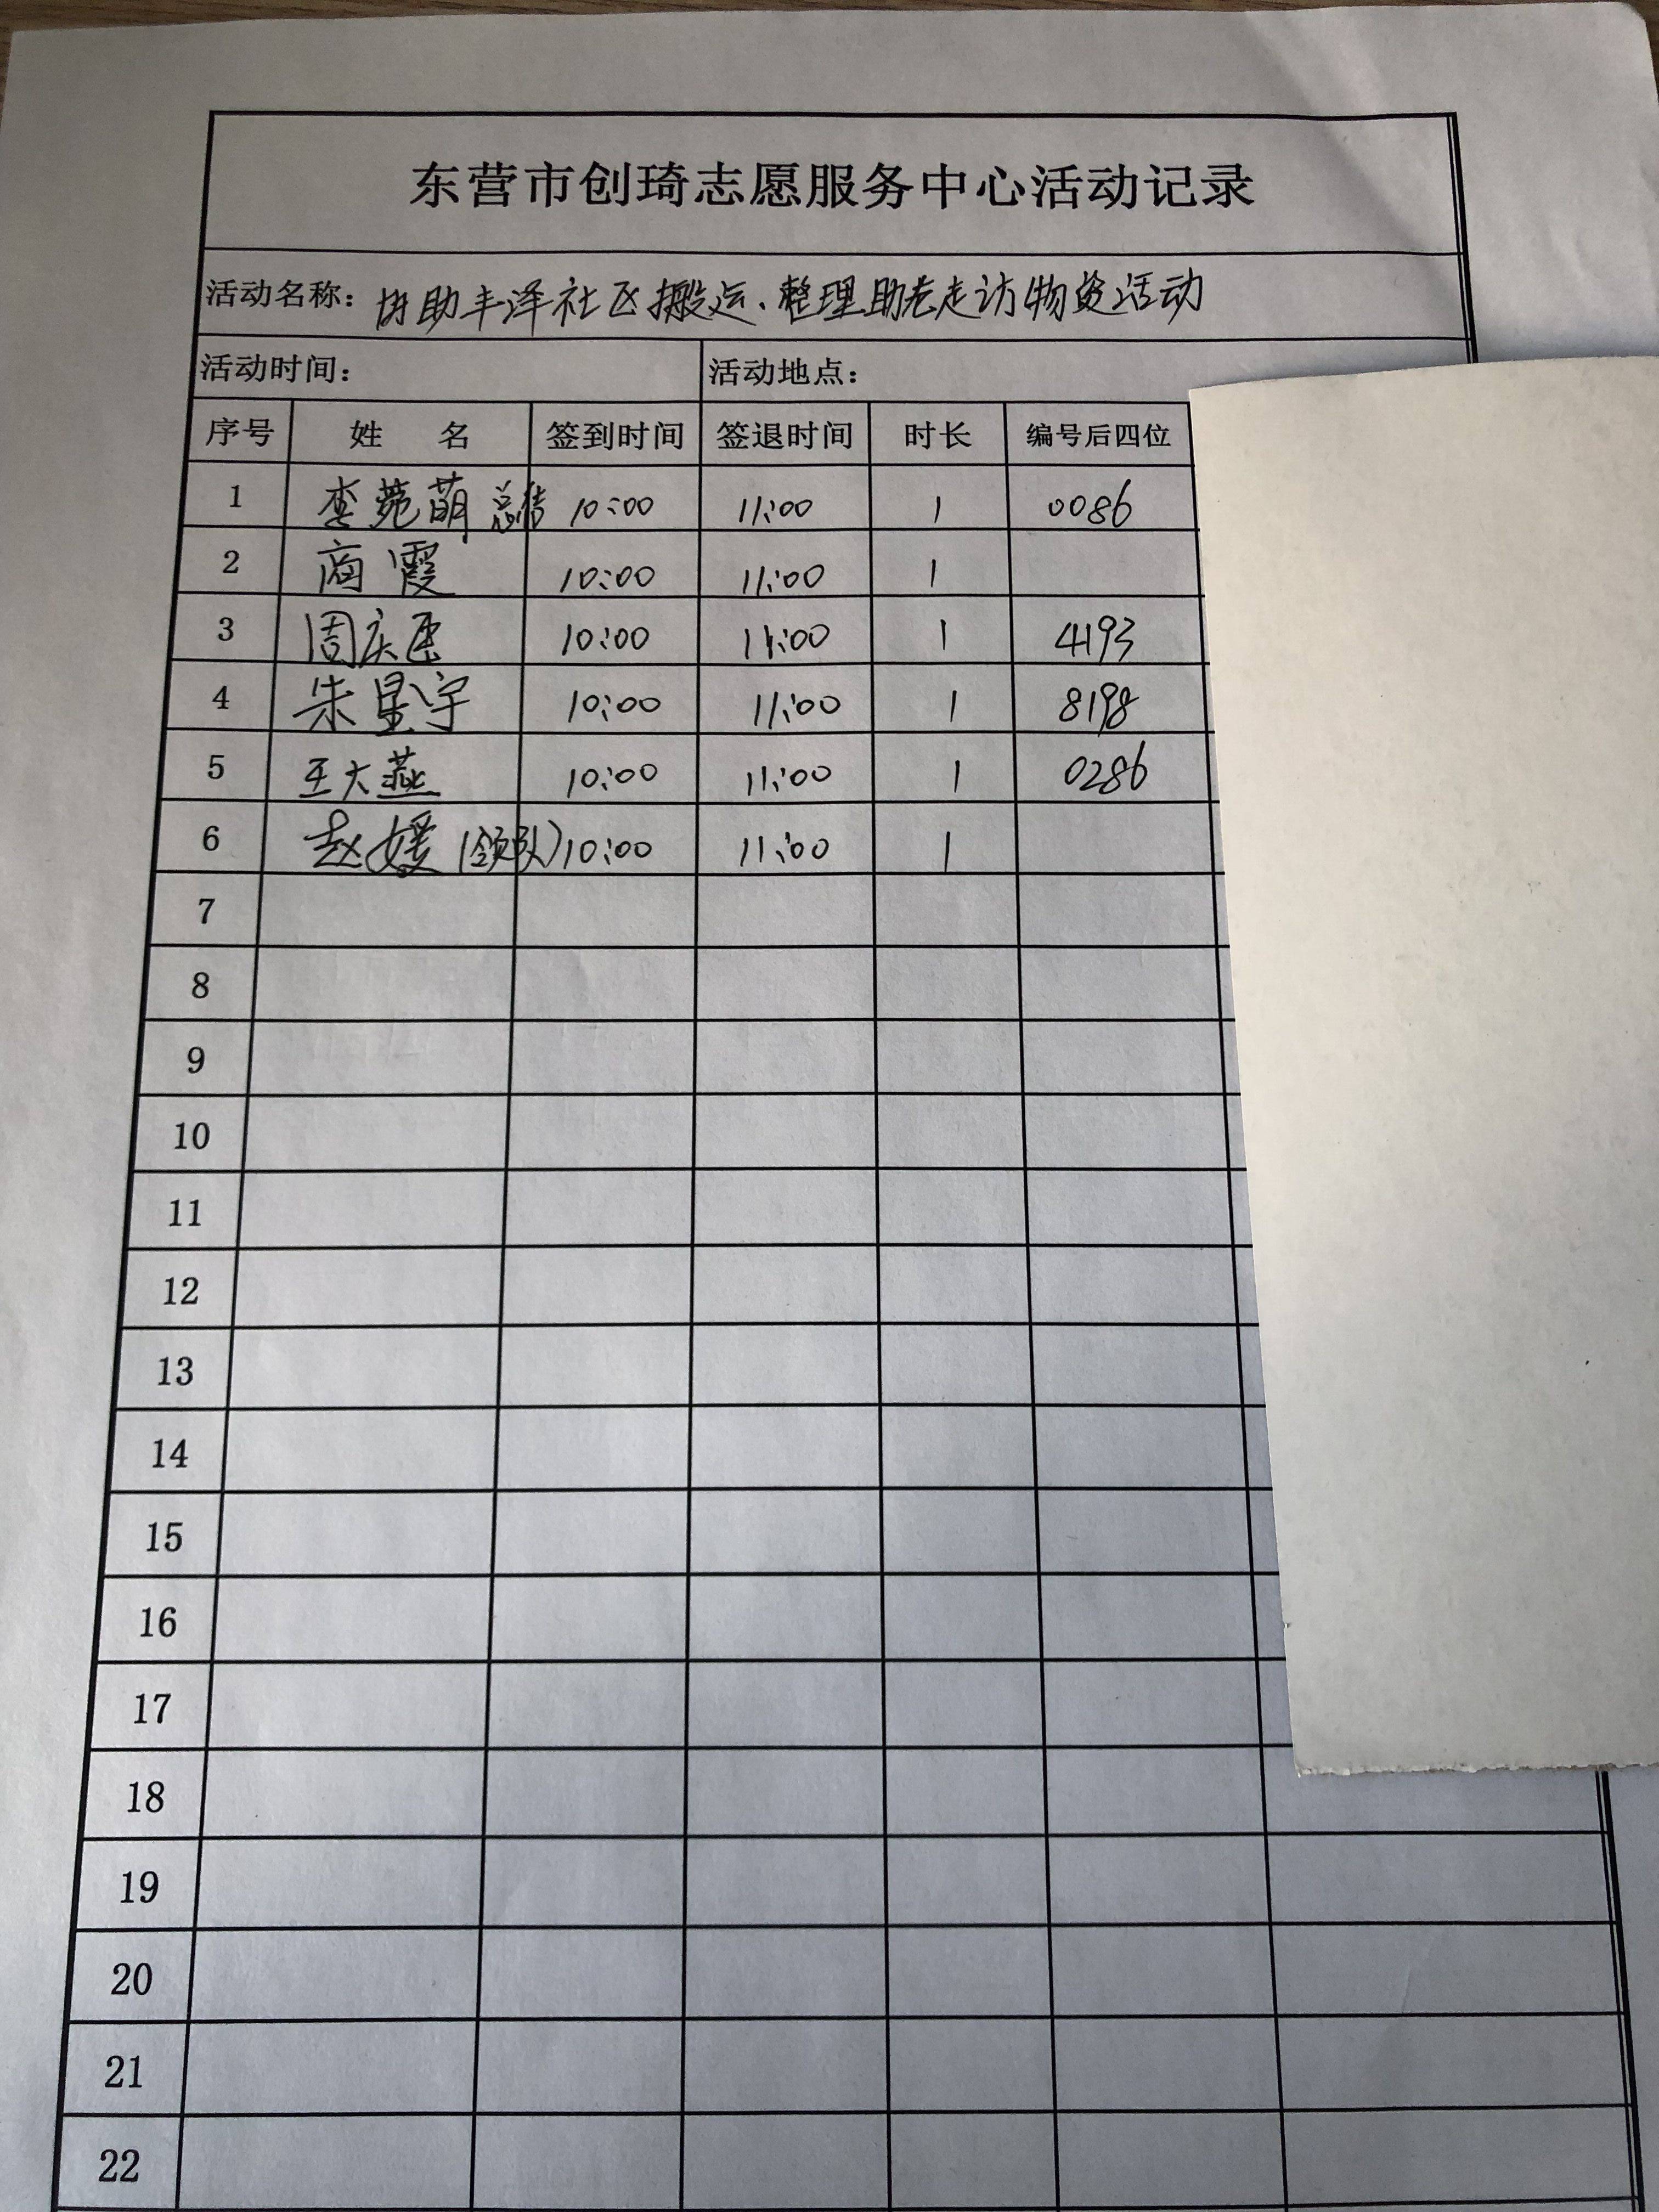 东营市创琦志愿服务中心活动记录
活动名称：协助丰泽社区搬运、整理助老走访物资活动
活动时间： 活动地点：
序号 姓 名 签到时间 签退时间 时长 编号后四位
1 李苑萌 总结 10:00 11:00 1 0086
2 商霞 10:00 11:00 1
3 周庆 10:00 11:00 1 4193
4 朱星宇 10:00 11:00 1 8198
5 王大燕 10:00 11:00 1 0286
6 赵媛（领队） 10:00 11:00 1
7
8
9
10
11
12
13
14
15
16
17
18
19
20
21
22